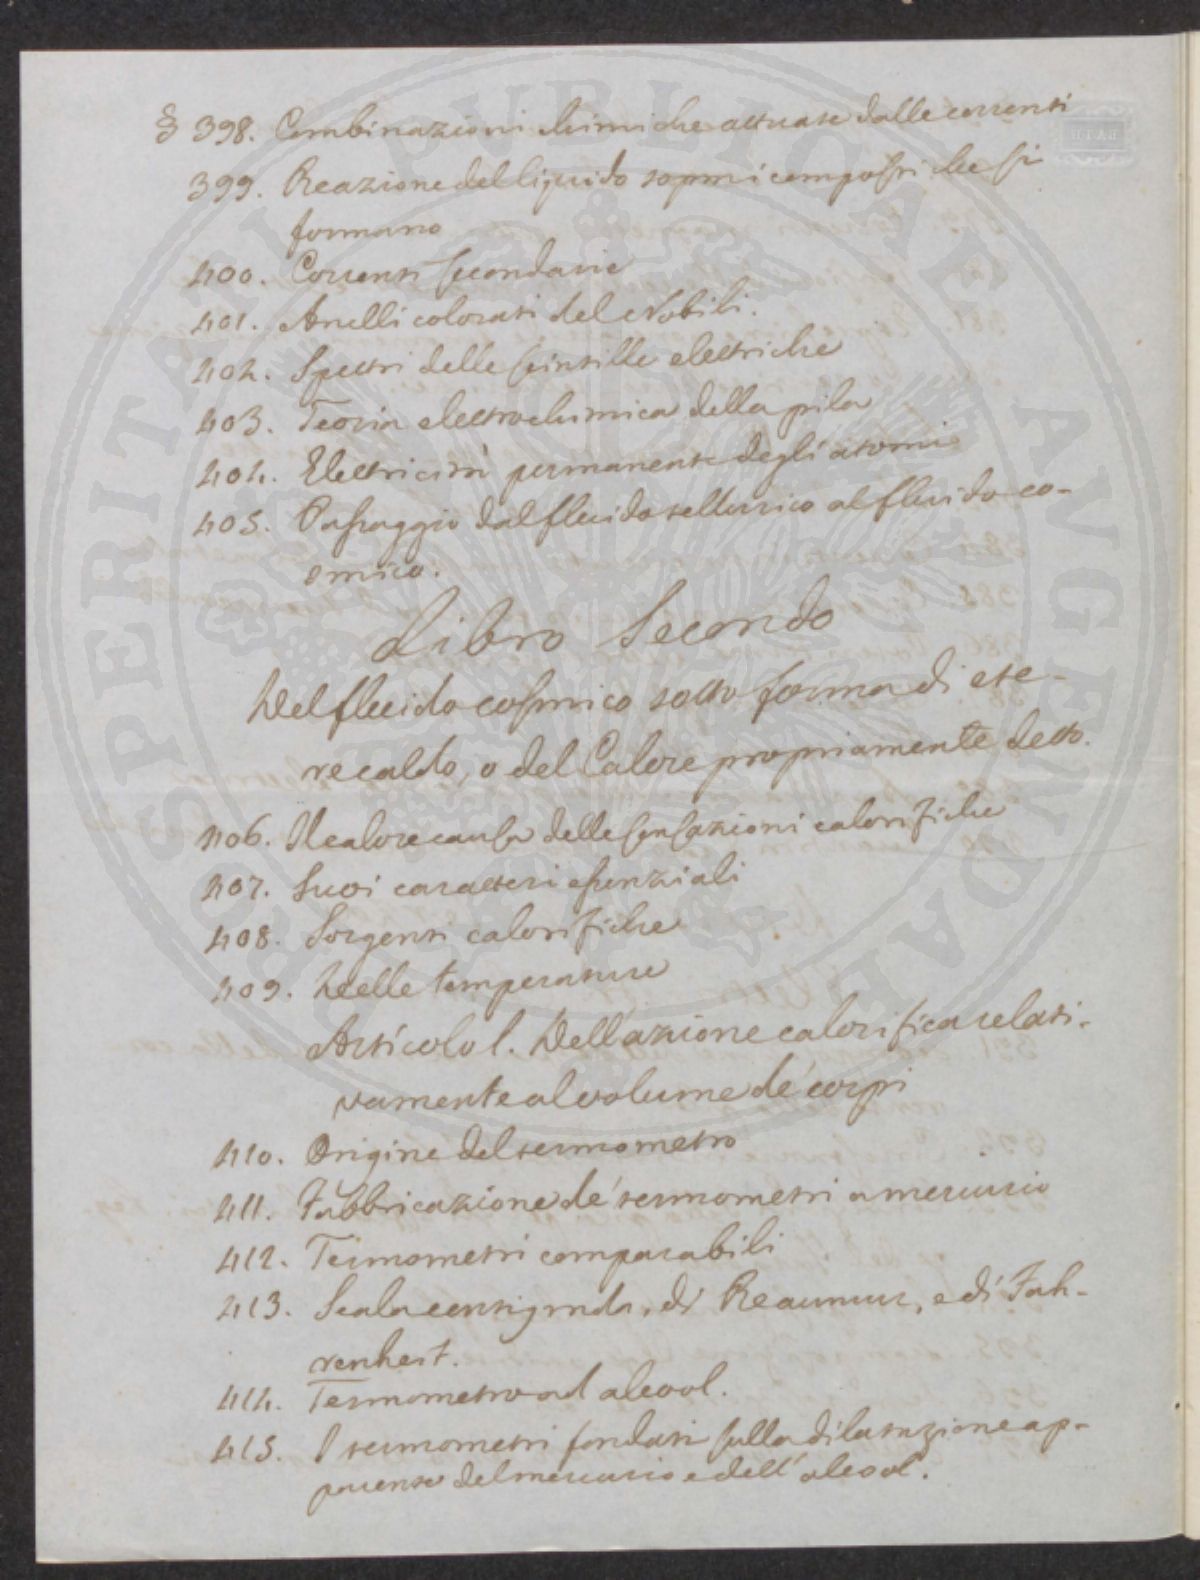 § 398. Combinazioni chimiche attuate dalle correnti
399. Reazione del liquido sopra i composti che si
formano
400. Correnti secondarie
401. Anelli colorati del Nobili.
402. Spettri delle scintille elettriche
403. Teoria elettrochimica della pila
404. Elettricità permanente degli atomi
405. Passaggio dal fluido tellurico al fluido co-
smico.
Libro Secondo
Del fluido cosmico sotto forma di ete-
re caldo, o del Calore propriamente detto.
406. Il calore causa delle sensazioni calorifiche
407. Suoi caratteri essenziali
408. Sorgenti calorifiche
409. Delle temperature
Articolo I. Dell'azione calorifica relati-
vamente al volume de' corpi
410. Origine del termometro
411. Fabbricazione de' termometri a mercurio
412. Termometri comparabili
413. Scala centigrada, di Reaumur, e di Fah-
renheit.
414. Termometro ad alcool.
415. I termometri fondati sulla dilatazione ap-
parente del mercurio e dell'alcool.